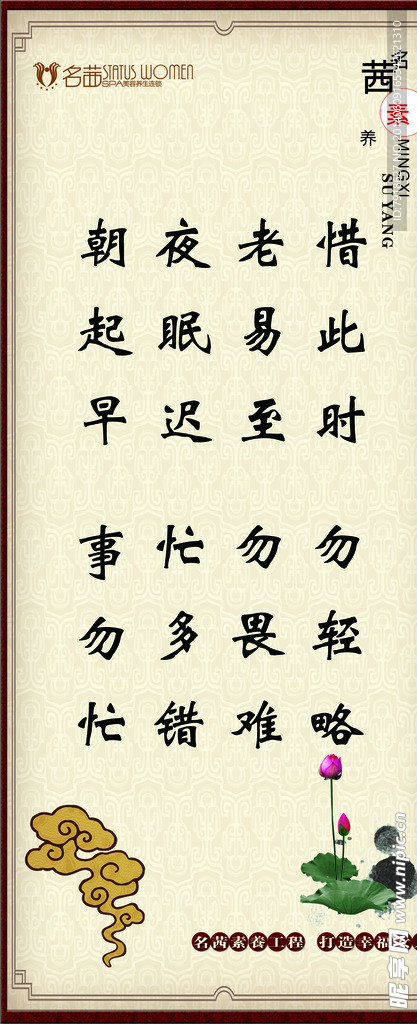 名茜 STATUS WOMEN
SPA美容养生连锁
茜
素
养
MINGXI
SUYANG
朝起早
夜眠迟
老易至
惜此时
事勿忙
忙多错
勿畏难
勿轻略
名茜素養工程 打造幸福
昵享网 www.nipic.cn